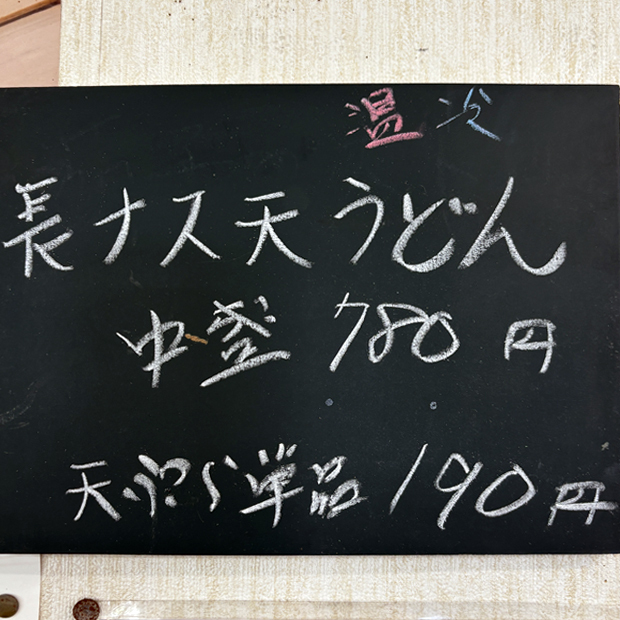 温 冷
長ナス天うどん
中釜 780円
天ぷら単品 190円